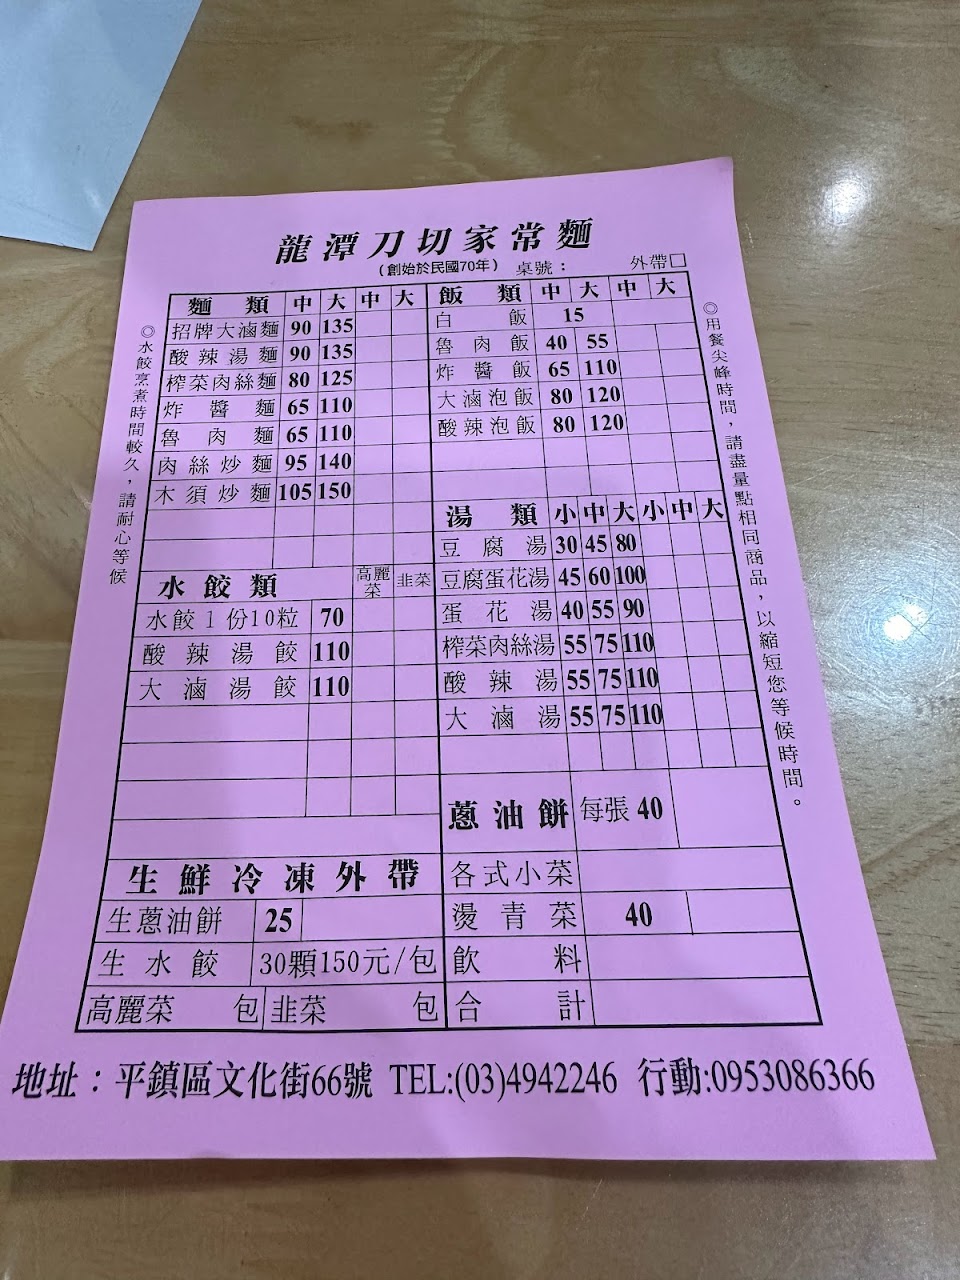 龍潭刀切家常麵
(創始於民國70年) 桌號： 外帶□
◎水餃烹煮時間較久，請耐心等候
麵類 中 大 中 大
招牌大滷麵 90 135
酸辣湯麵 90 135
榨菜肉絲麵 80 125
炸醬麵 65 110
魯肉麵 65 110
肉絲炒麵 95 140
木須炒麵 105 150
水餃類 高麗菜 韭菜
水餃1份10粒 70
酸辣湯餃 110
大滷湯餃 110
生鮮冷凍外帶
生蔥油餅 25
生水餃 30顆150元/包
高麗菜 包 韭菜 包
飯類 中 大 中 大
白飯 15
魯肉飯 40 55
炸醬飯 65 110
大滷泡飯 80 120
酸辣泡飯 80 120
湯類 小 中 大 小 中 大
豆腐湯 30 45 80
豆腐蛋花湯 45 60 100
蛋花湯 40 55 90
榨菜肉絲湯 55 75 110
酸辣湯 55 75 110
大滷湯 55 75 110
蔥油餅 每張 40
各式小菜
燙青菜 40
飲料
合計
◎用餐尖峰時間，請盡量點相同商品，以縮短您等候時間。
地址：平鎮區文化街66號 TEL:(03)4942246 行動:0953086366